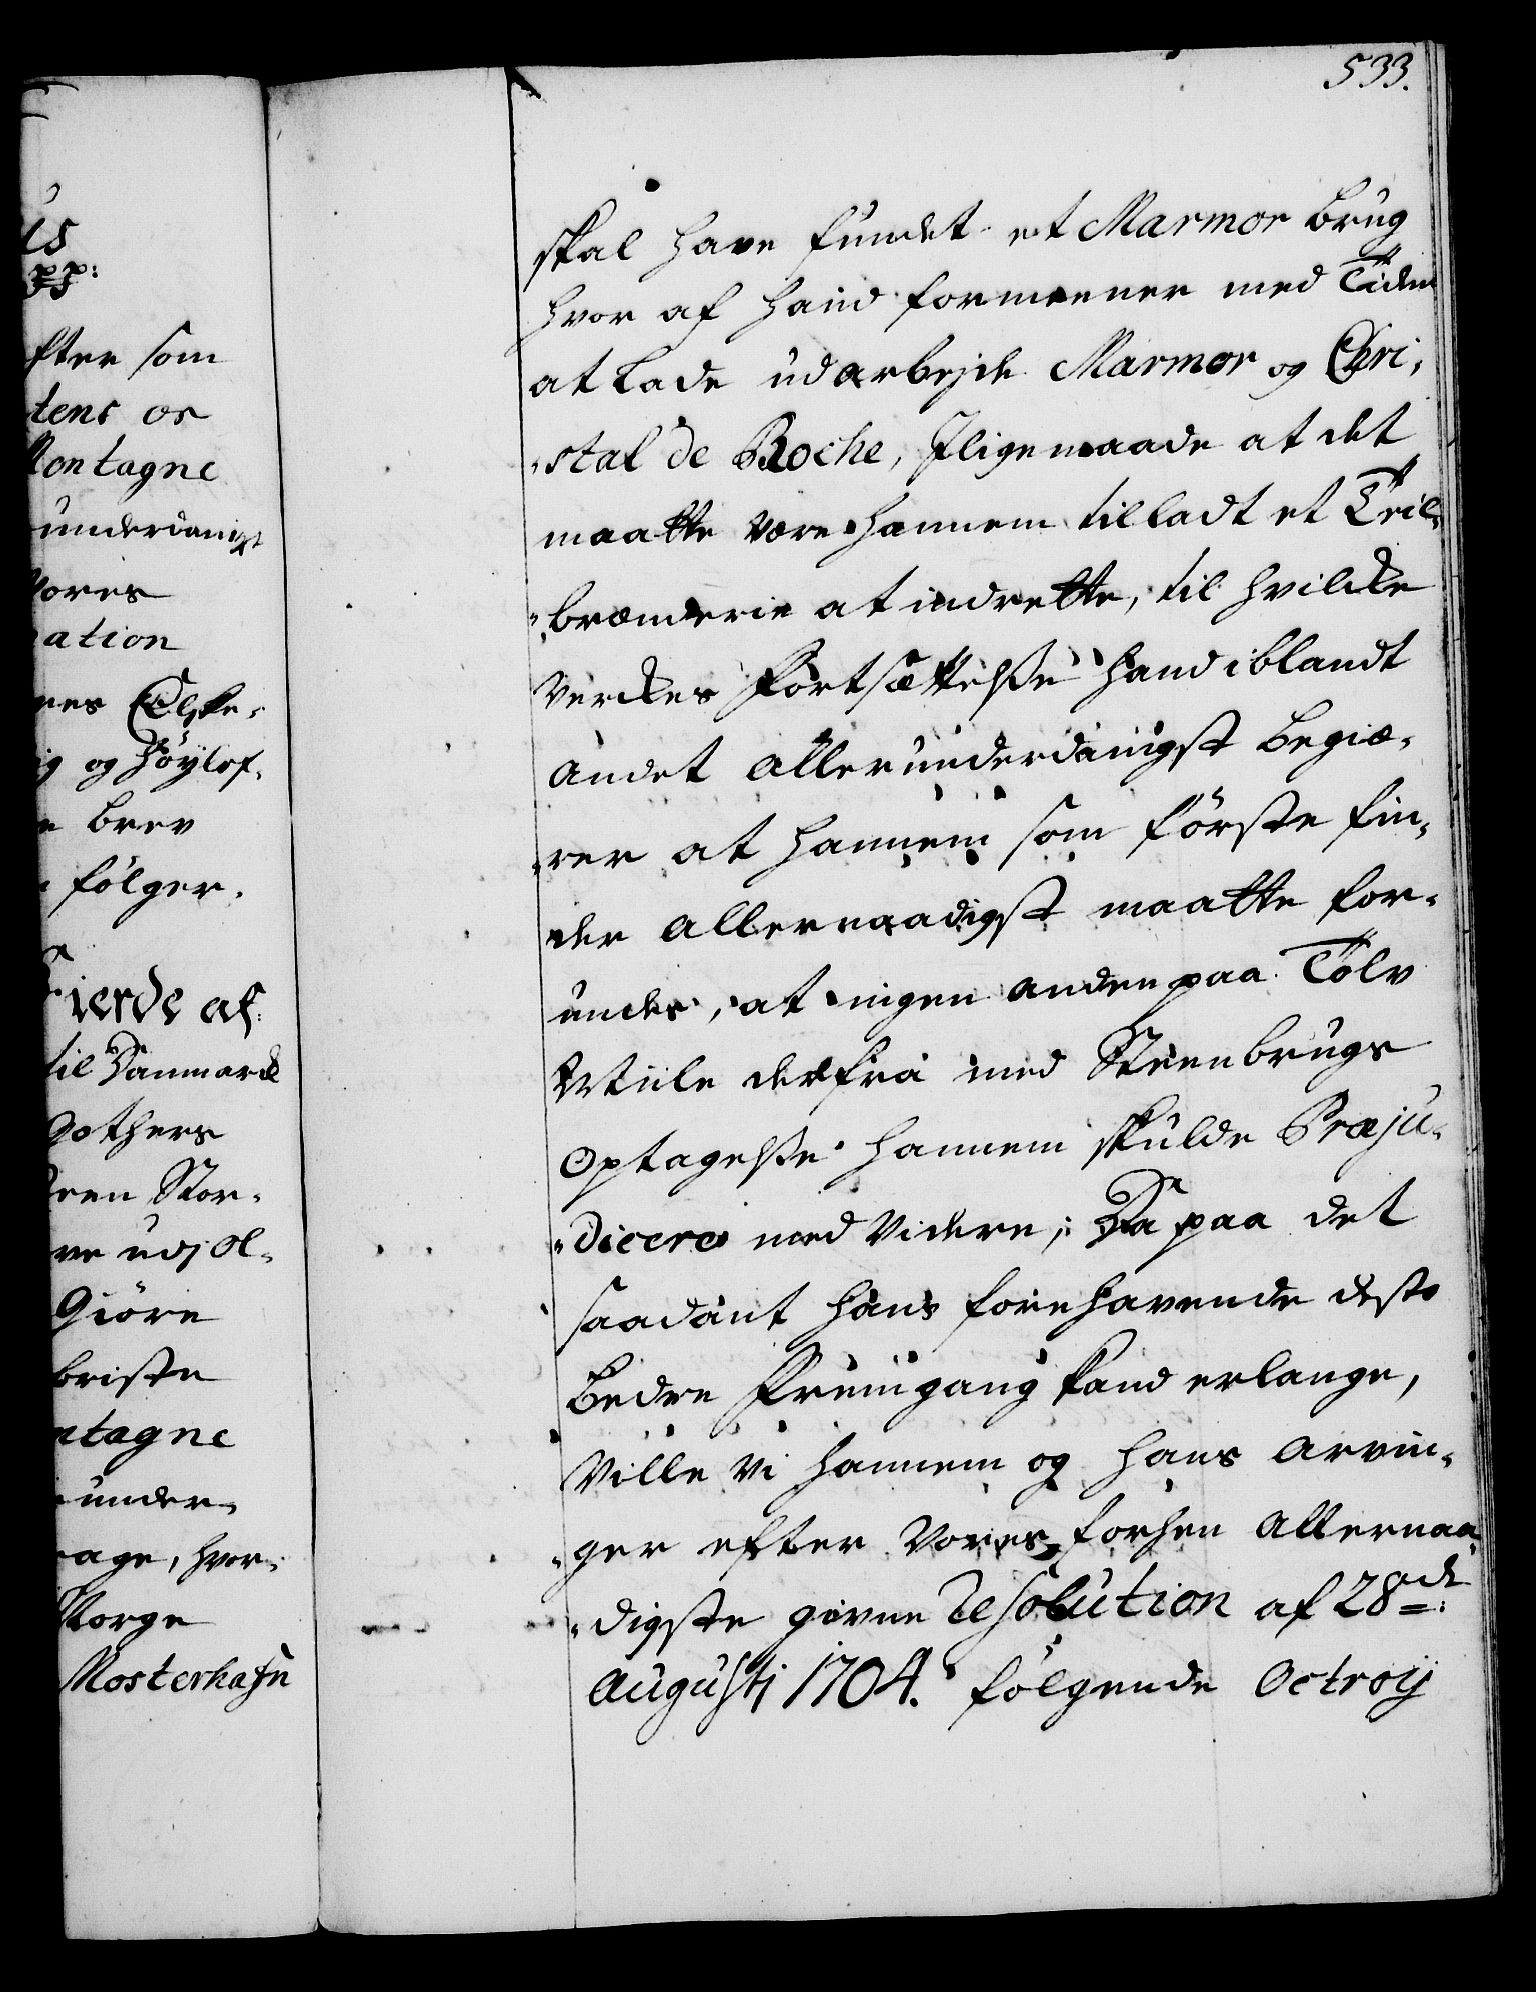 533.
skal have fundet et Marmor brug
hvor af hand formeener med Tiden
at lade udarbejde Marmor og Chri-
-stal de Roche, Jligemaade at det
maatte være hannem tilladt et
-brænderie at indrette, til hvilcke
Verckes fortsættelsse hand iblandt
andet allerunderdanigst begiæ-
-rer at hannem som förste fin-
der allernaadigst maatte for-
undes, at ingen anden paa Tolv
Miile derfra med Steenbrugs
Optagelsse hannem skulde Præju-
-dicere med Videre; Da paa det
saadant hans forehavende dest
bedre Fremgang kand erlange,
Ville Vi hannem og hans arvin-
-ger efter Vores forhen allernaa-
-digste givne Resolution af 28de:
Augustj 1704. fölgende Octroij
us
pp:
fter som
tens os
Montagne
underdanigst
Vores
ation
res Elske-
ig og höylof-
e brev
fölger.
Fierde af
til Danmarck
Gothers
Stor-
ve udj Ol-
Giöre
briste
ntagne
under-
age, hvor-
Norge
Mosterhafn